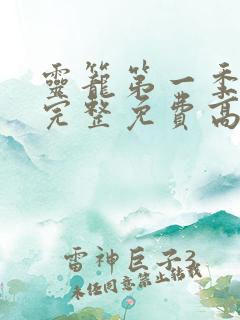 靈籠第一季
完整免費高
雷神巨子3
未经同意禁止转载